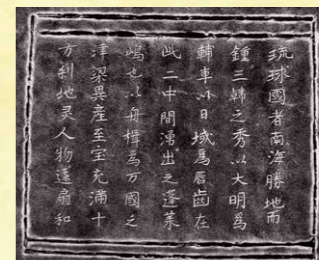 琉球國者南海勝地而
鍾三韓之秀以大明為
輔車以日域為脣齒在
此二中間湧出之蓬萊
嶋也以舟楫為万國之
津梁異産至宝充滿十
方刹地灵人物遠扇和